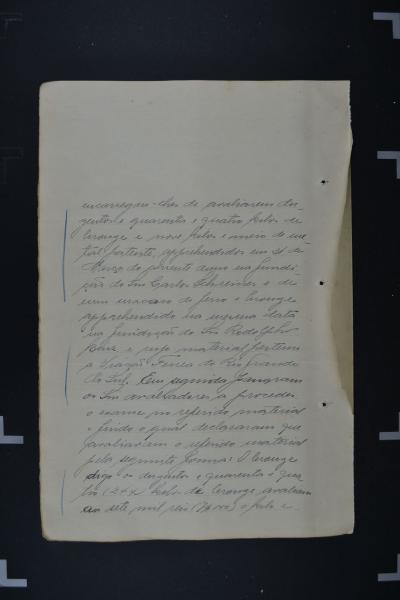 encarregou-lhes de avaliarem du-
zentos e quarenta e quatro kilos de
bronze e nove kilos e meio de me-
tal patente, apprehendidos em 21 de
Março do corrente anno na fundi-
ção do Snr Carlos Schreiner e de
um macaco de ferro e bronze
apprehendido na mesma data
na fundição do Snr Rodolpho
e cujo material pertence
a Viação Ferrea do Rio Grande
do Sul. Em seguida passaram
os Snrs avaliadores a proceder
o exame no referido material
e findo o qual declararam que
avaliaram o referido material
pela seguinte forma: O bronze
digo os duzentos e quarenta e qua-
tro (244) kilos de bronze avaliam
ao sete mil reis (7$000) o kilo e